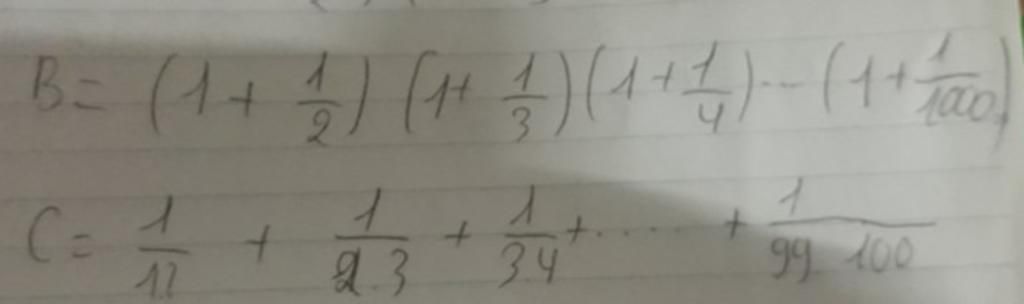 B = (1 + 1/2) (1 + 1/3) (1 + 1/4) ... (1 + 1/1000)
C = 1/1.2 + 1/2.3 + 1/3.4 + ..... + 1/99 100